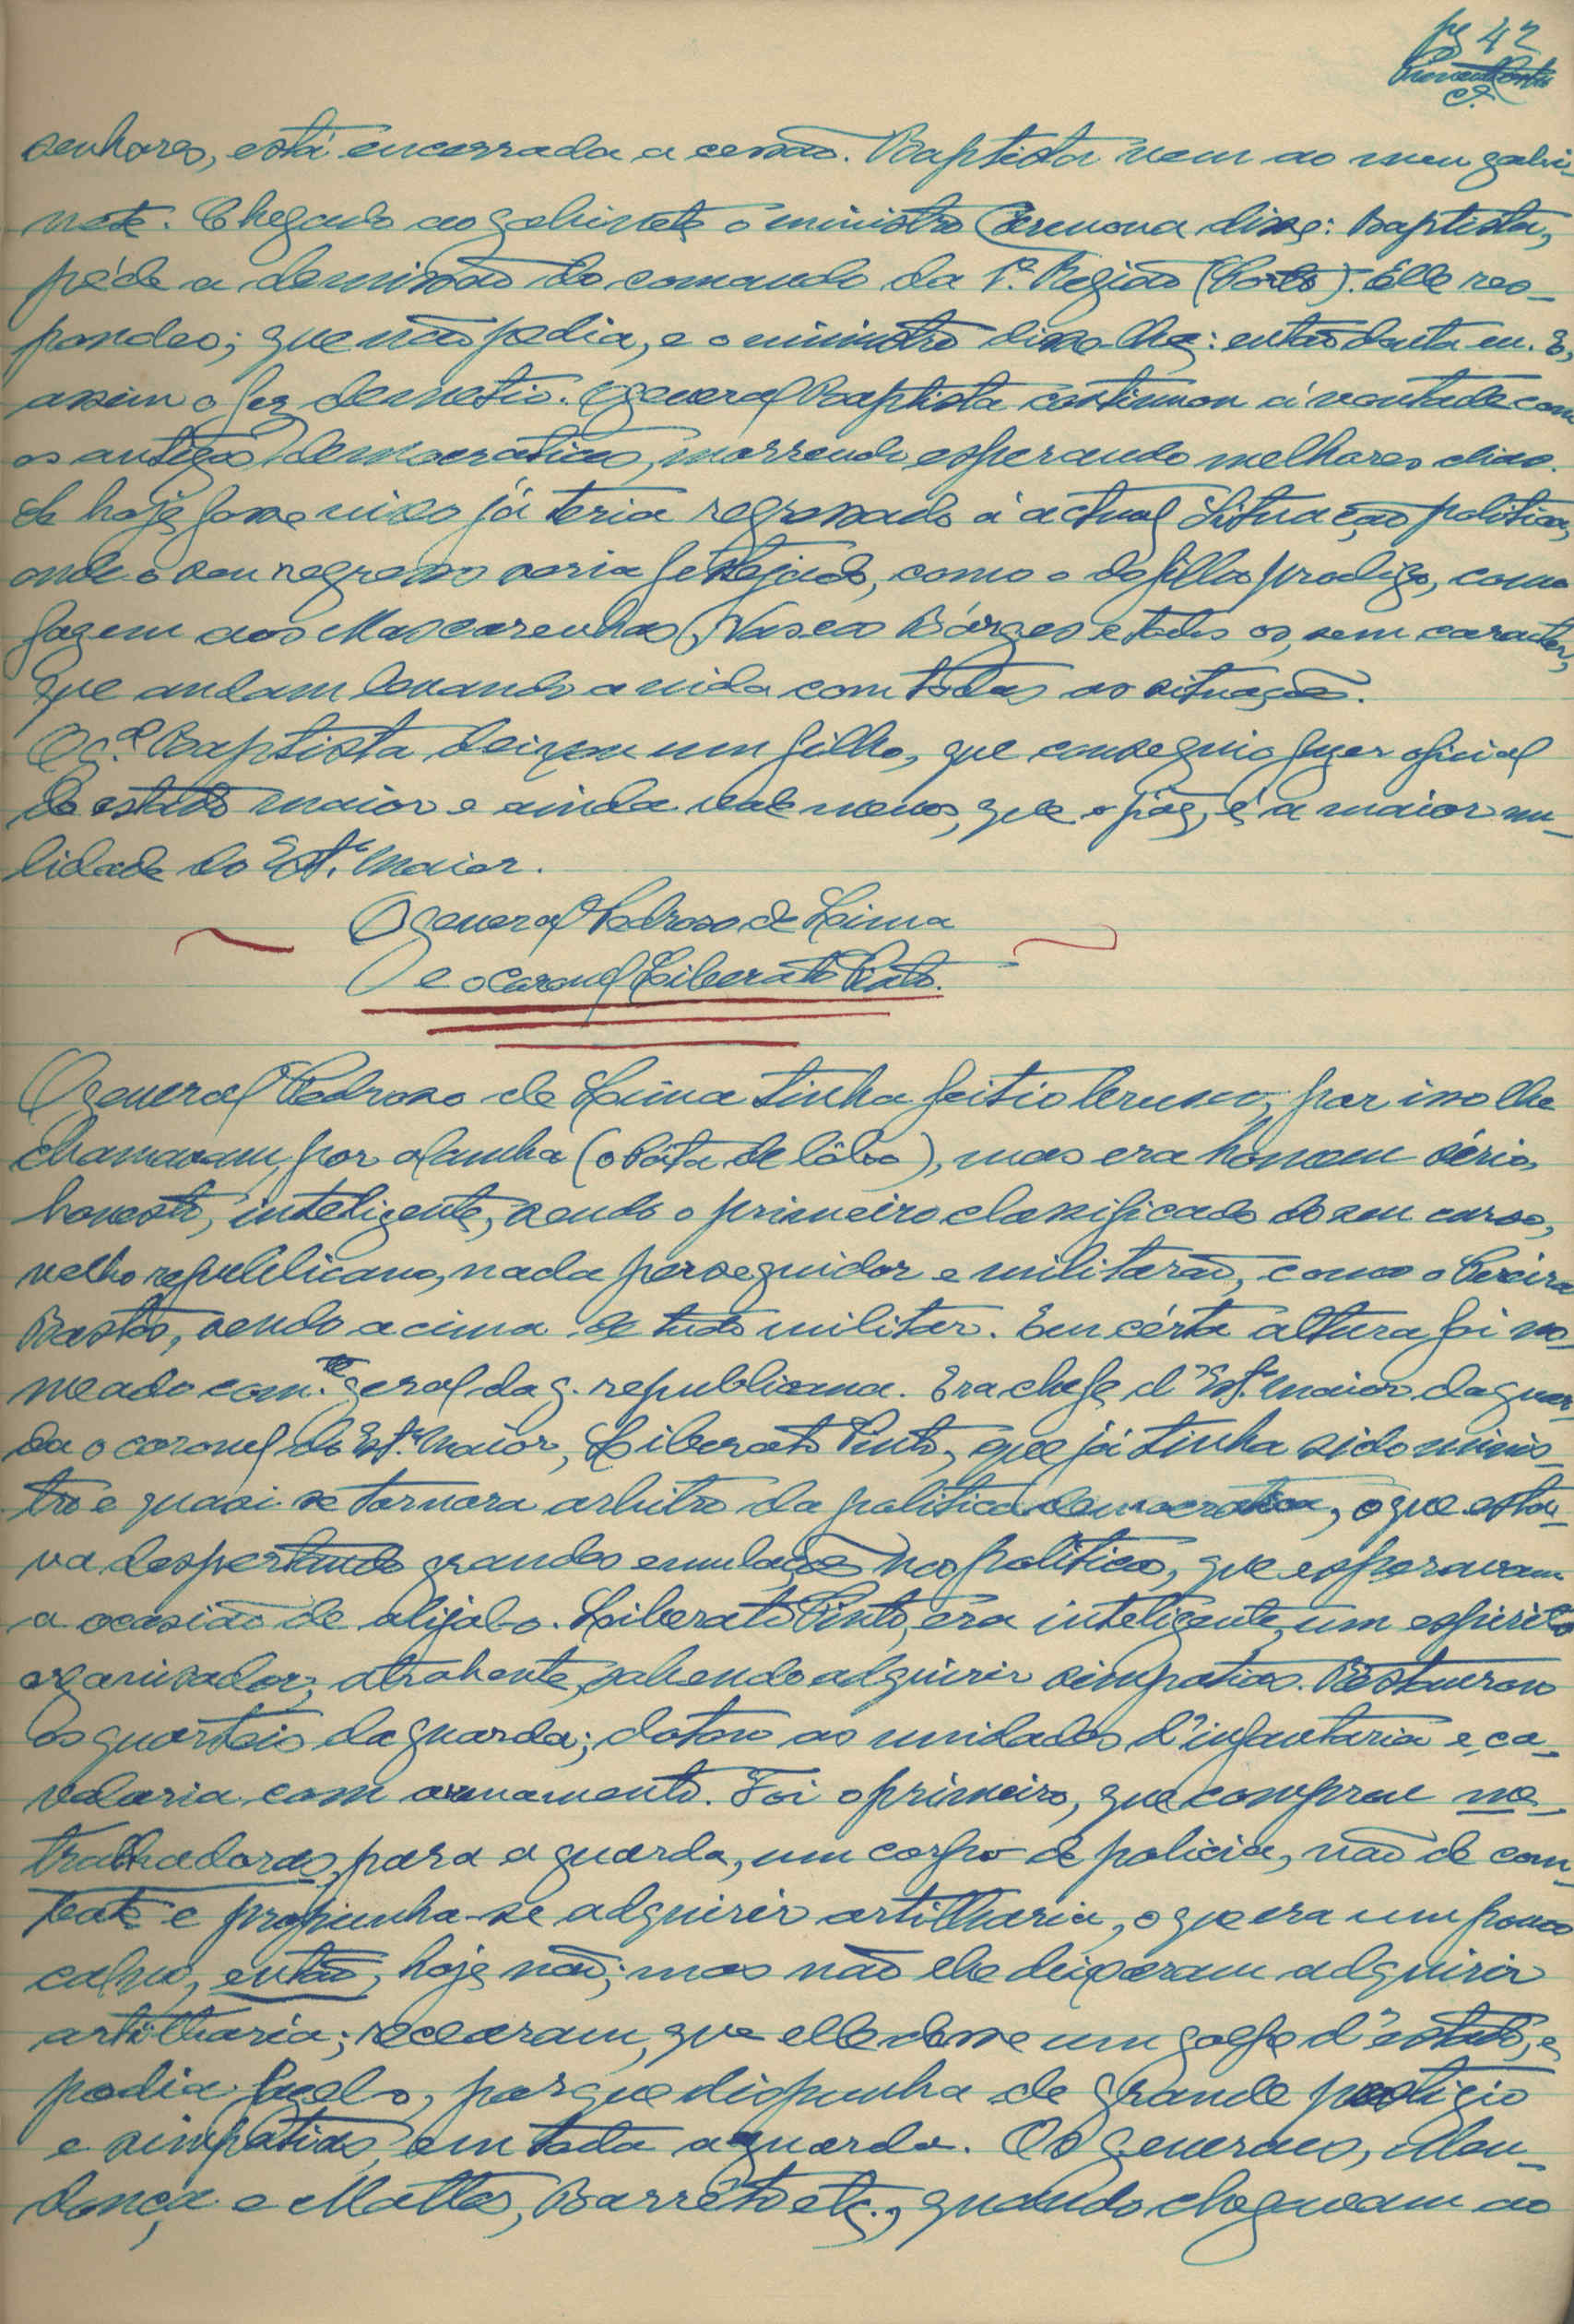 pg 42
senhores, está encerrada a cessão. Baptista vem ao meu gabi-
nete. Chegado ao gabinete o ministro Carmona disse: Baptista,
péde a demissão do comando da 1ª. Região (Porto). Elle res-
pondeo; que não pedia, e o ministro disse-lhe: então dou-ta eu. E,
assim o fez demetio. O general Baptista continuou á vontade com
os antigos democraticos, morrendo esperando melhores dias.
Se hoje fosse vivo já teria regressado á actual situação politica,
onde o seu regresso seria festejado, como o do filho prodigo, como
fazem aos Mascarenhas, Vasco Bórges e todos os, sem caracter,
que andam levando a vida com todas as situações.
O g.al Baptista deixou um filho, que conseguio fazer oficial
do estado maior e ainda vale menos, que o páe, é a maior nu-
lidade do Est.º Maior.
O general Pedroso de Lima
e o coronel Liberato Pinto.
O general Pedroso de Lima tinha feitio brusco, por isso lhe
chamavam, por alcunha (o Páta de lôbo), mas era homem sério,
honesto, inteligente, sendo o primeiro classificado do seu curso,
velho republicano, nada perseguidor e militarão, como o Pereira
Bastos, sendo acima de tudo militar. Em cérta altura foi no-
meado com.te geral da g. republicana. Era chefe d'Est.º Maior da guar-
da o coronel do Est.º Maior, Liberato Pinto, que já tinha sido minis-
tro e quasi se tornara arbitro da politica democratica, o que esta-
va despertando grandes emulações nos politicos, que esperavam
a ocasião de alijal-o. Liberato Pinto, era inteligente, um espirito
organisador, atrahente, sabendo adquirir simpatias. Restaurou
os quarteis da guarda; dotou as unidades d'infantaria e ca-
valaria com armamento. Foi o primeiro, que comprou me-
tralhadoras, para a guarda, um corpo de policia, não de com-
bate e propunha-se adquirir artilharia, o que era um pouco
então, hoje não; mas não lhe deixaram adquirir
artilharia; recearam, que elle désse um golpe d'estado, e
podia fazel-o, porque dispunha de grande prestigio
e simpatias, em toda a guarda. Os generaes, Men-
donça e Mattos, Barrêto etc., quando chegavam ao